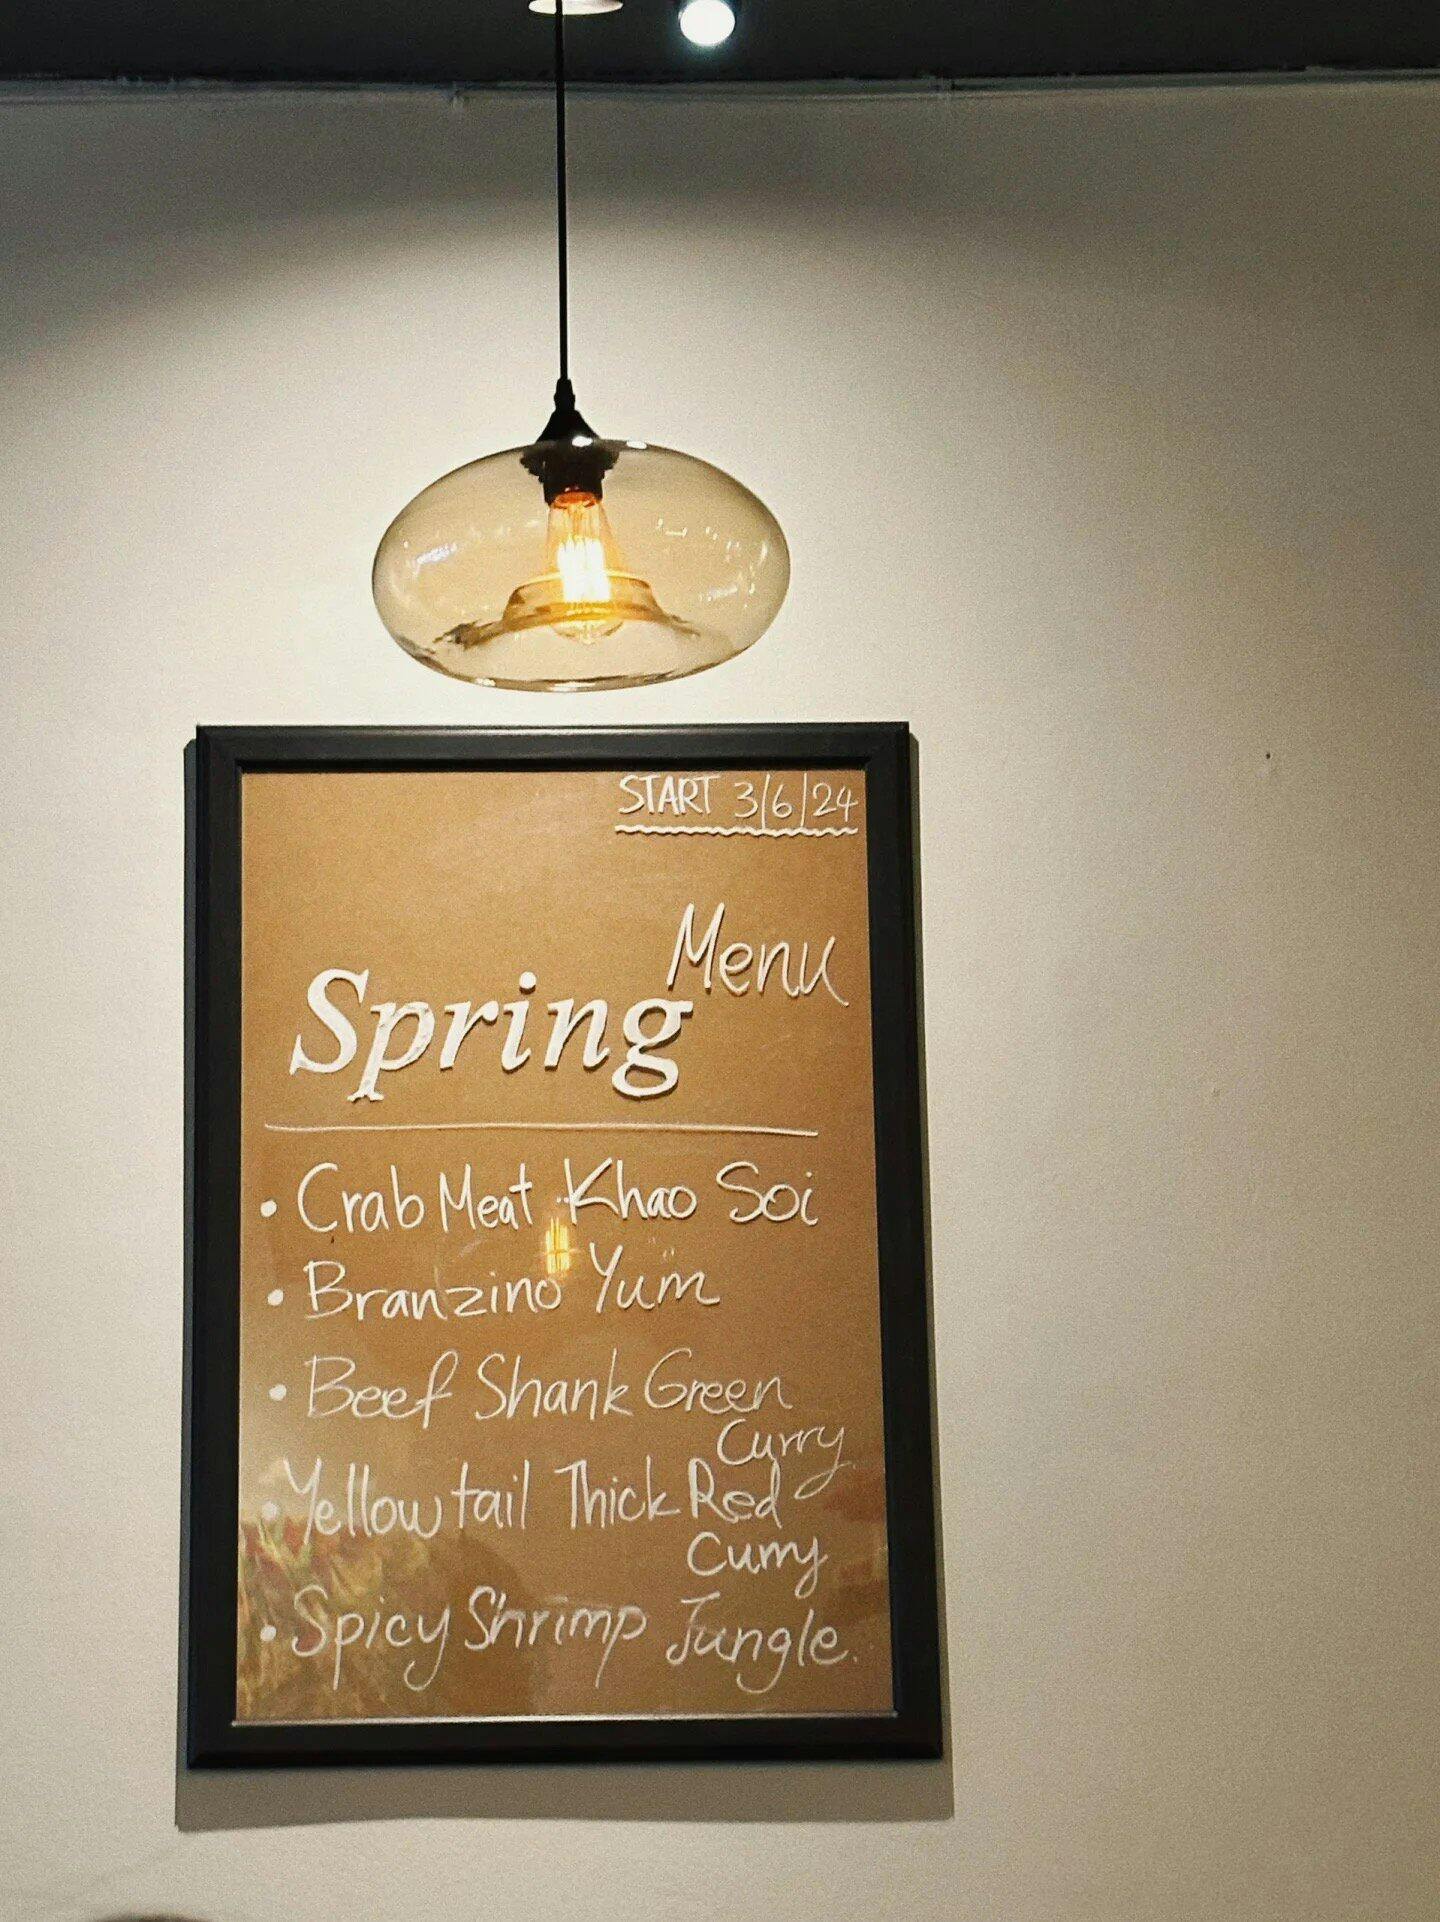 START 3/6/24
Spring Menu
• Crab Meat Khao Soi
• Branzino Yum
• Beef Shank Green
Curry
• Yellow tail Thick Red
Curry
• Spicy Shrimp Jungle.